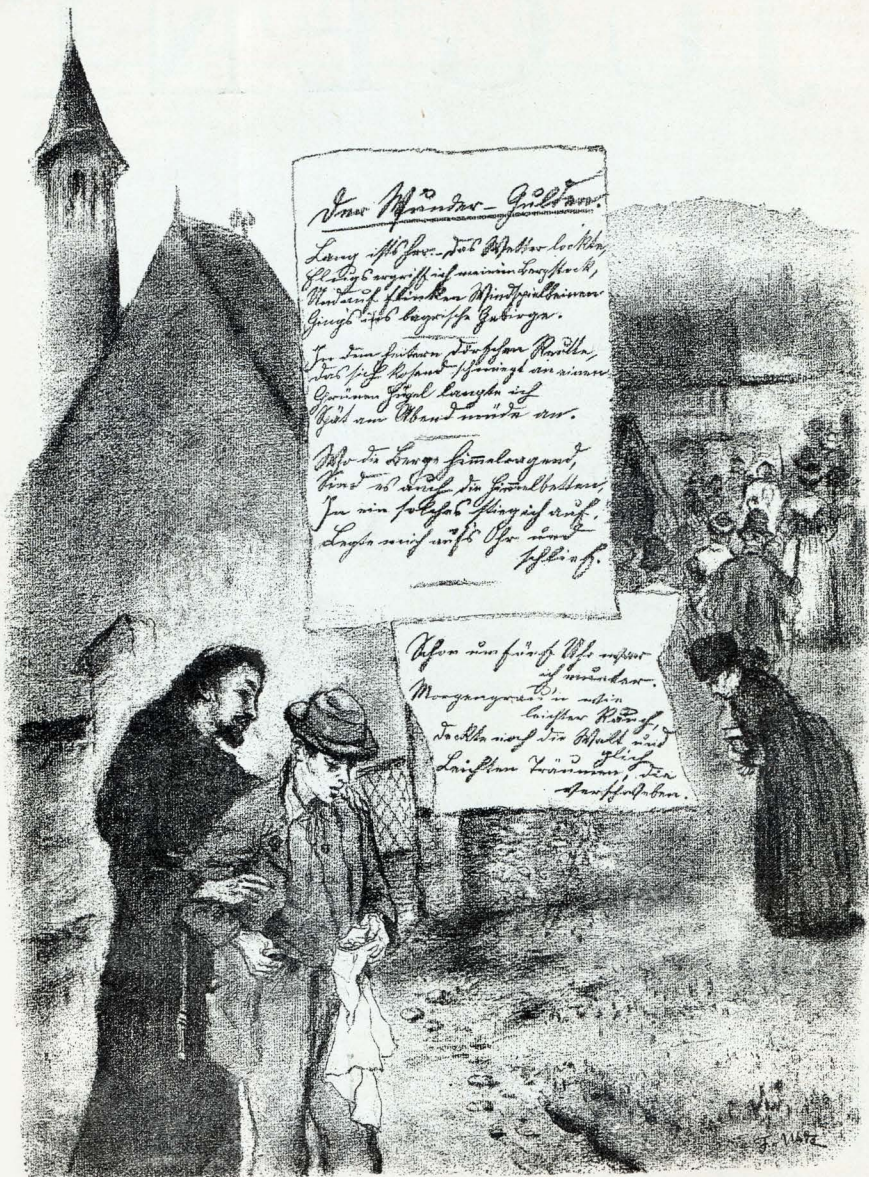 Der Wunder-Gulden.
Lang ist's her. – Das Wetter lockte,
Flugs ergriff ich meinen Bergstock,
Und auf flinken Windspielbeinen
Ging's ins bayrische Gebirge.
In dem heitern Dörfchen Reutte,
Das sich kosend schmiegt an einen
Grünen Hügel langte ich
Spät am Abend müde an.
Wo die Berge himmelragend,
Sind es auch die Himmelbetten,
In ein solches stieg ich auf,
Legte mich aufs Ohr und
schlief.
Schon um fünf Uhr war
ich munter.
Morgengrau'n wie
leichter Rauch,
Deckte noch die Welt und
glich
Leichten Träumen, die
verschweben.